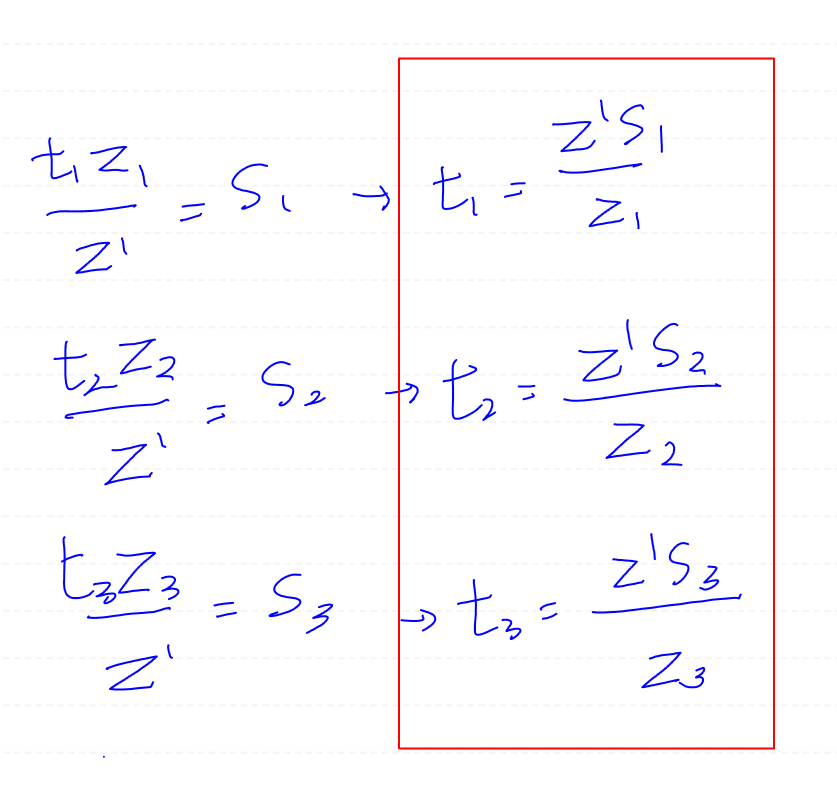 t₁z₁/z' = s₁ → t₁ = z's₁/z₁
t₂z₂/z' = s₂ → t₂ = z's₂/z₂
t₃z₃/z' = s₃ → t₃ = z's₃/z₃